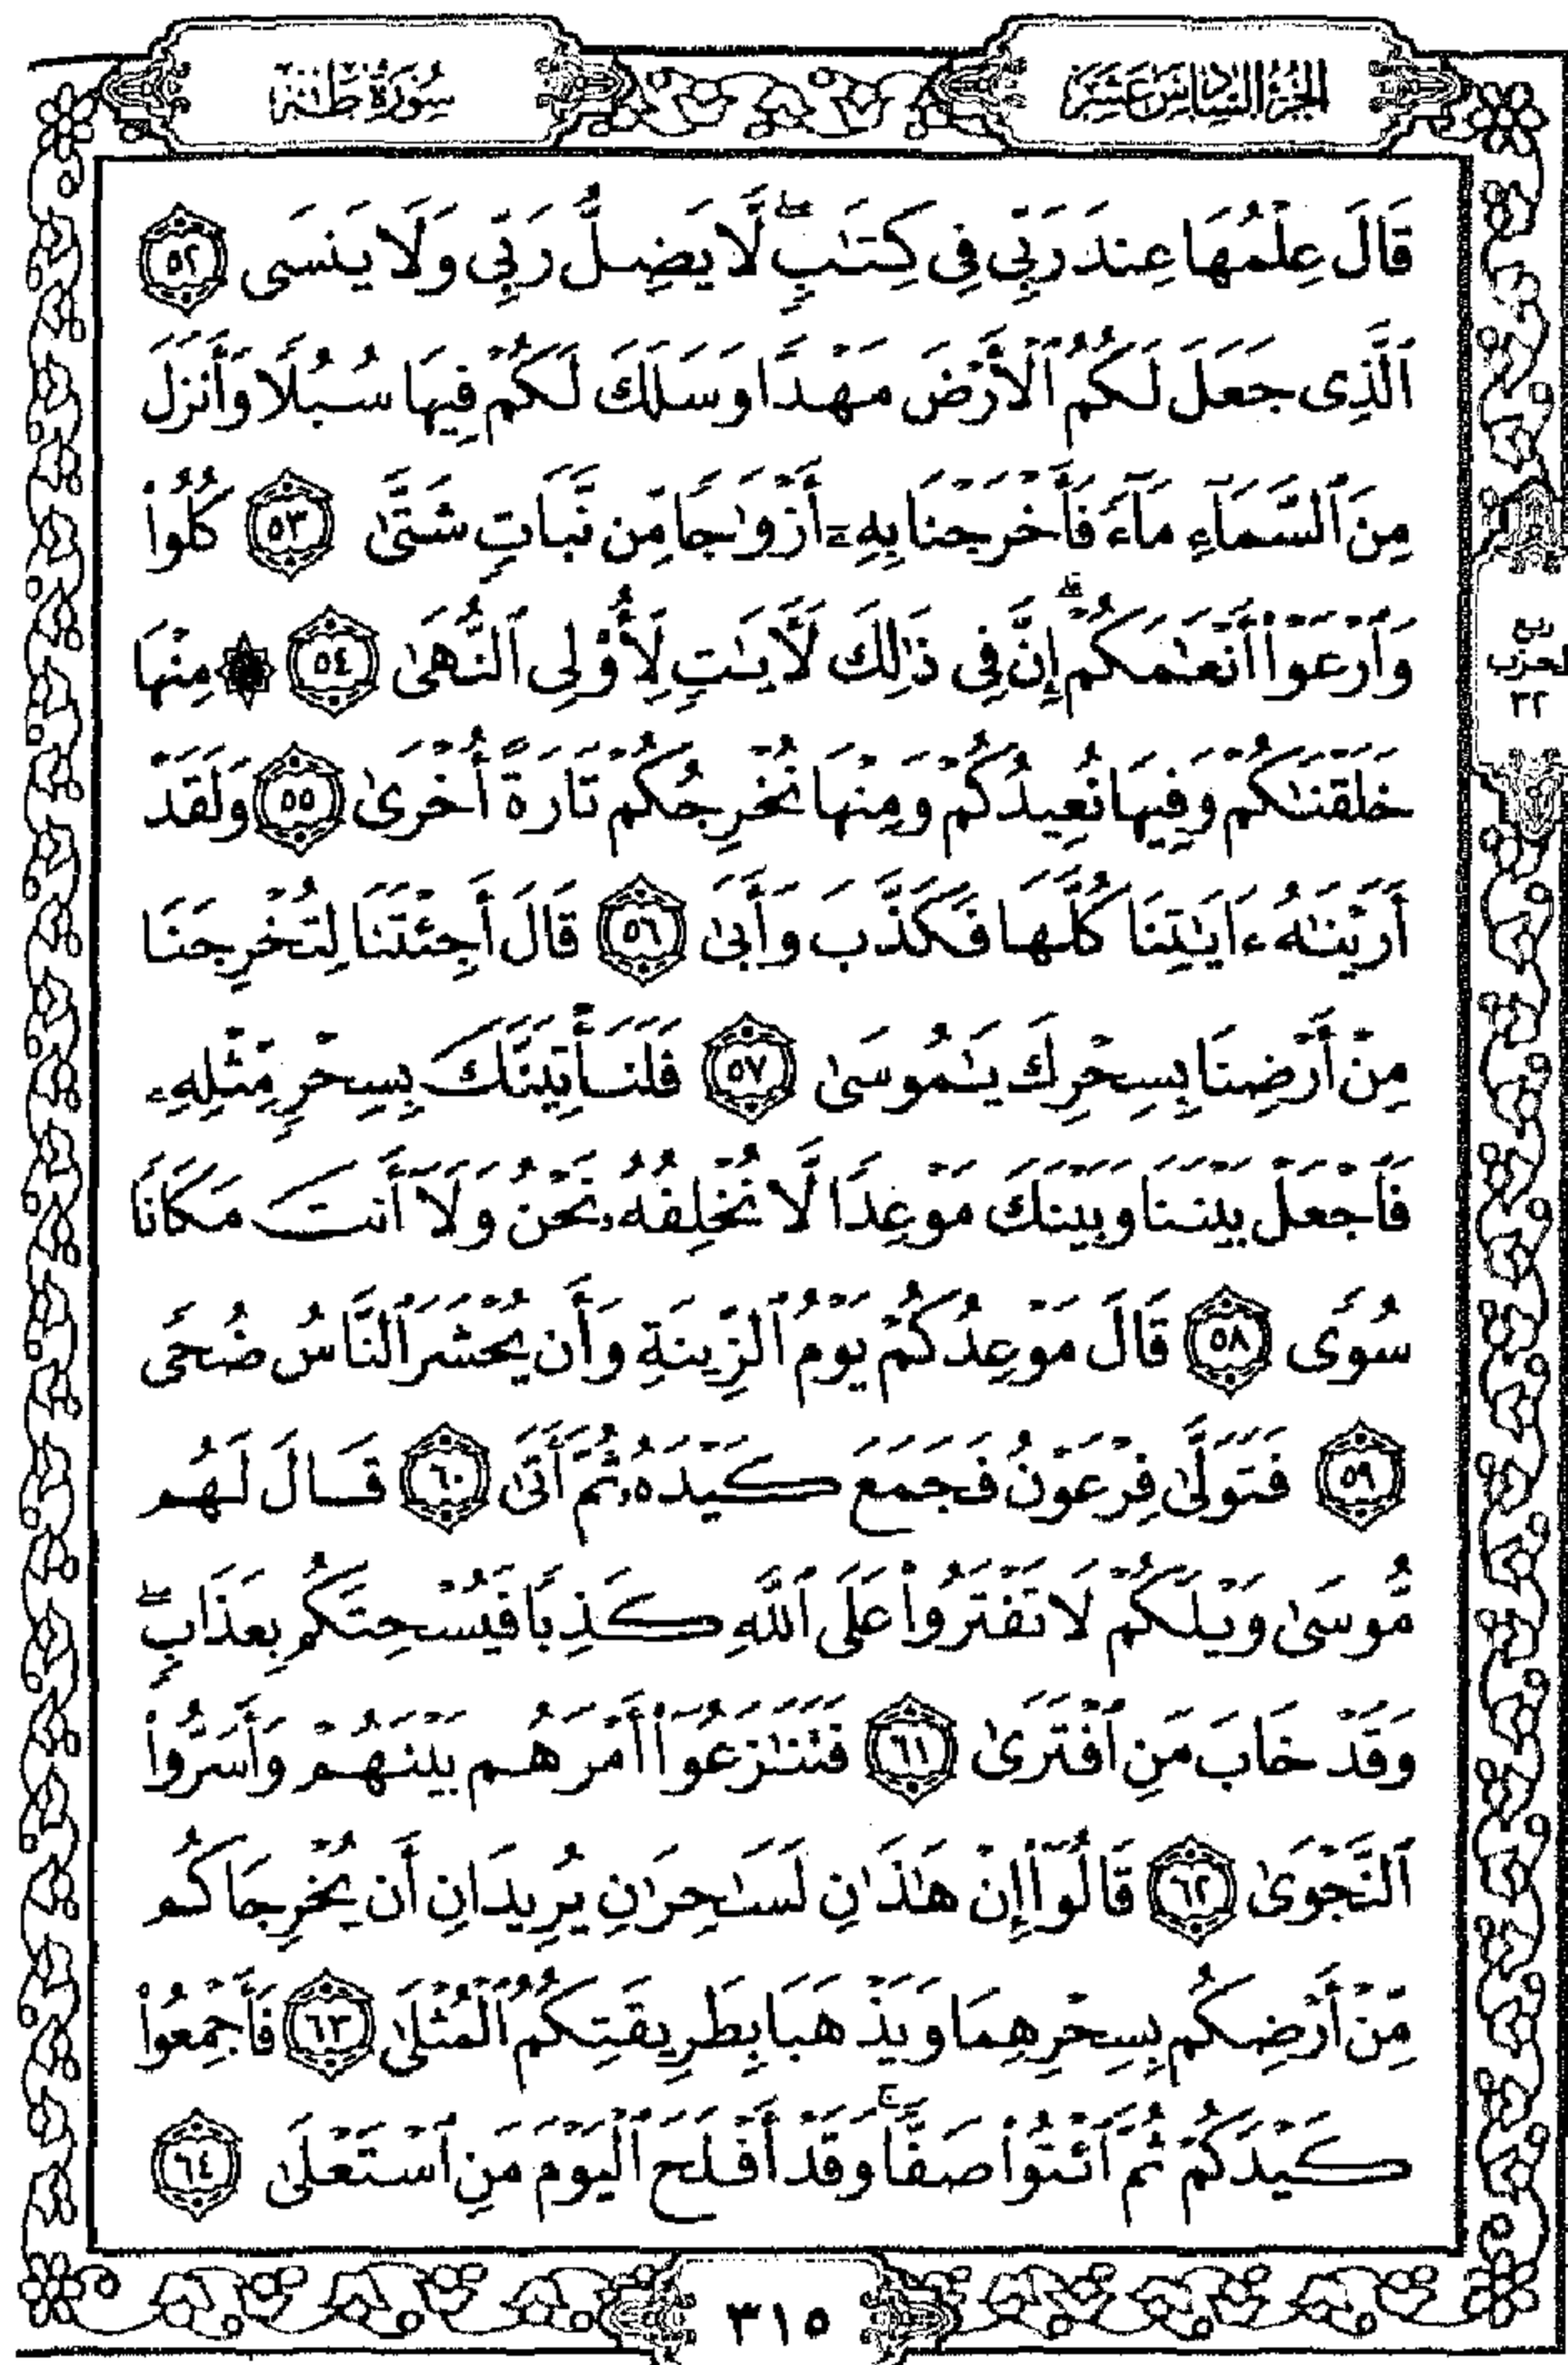 الجزء السادس عشر
سورة طه
قَالَ عِلْمُهَا عِندَ رَبِّى فِى كِتَٰبٍۖ لَّا يَضِلُّ رَبِّى وَلَا يَنسَى ٥٢
ٱلَّذِى جَعَلَ لَكُمُ ٱلْأَرْضَ مَهْدًا وَسَلَكَ لَكُمْ فِيهَا سُبُلًا وَأَنزَلَ
مِنَ ٱلسَّمَآءِ مَآءً فَأَخْرَجْنَا بِهِۦٓ أَزْوَٰجًا مِّن نَّبَاتٍ شَتَّىٰ ٥٣ كُلُوا۟
وَٱرْعَوْا۟ أَنْعَٰمَكُمْۗ إِنَّ فِى ذَٰلِكَ لَـَٔايَٰتٍ لِّأُو۟لِى ٱلنُّهَىٰ ٥٤ ۞ مِنْهَا
خَلَقْنَٰكُمْ وَفِيهَا نُعِيدُكُمْ وَمِنْهَا نُخْرِجُكُمْ تَارَةً أُخْرَىٰ ٥٥ وَلَقَدْ
أَرَيْنَٰهُ ءَايَٰتِنَا كُلَّهَا فَكَذَّبَ وَأَبَىٰ ٥٦ قَالَ أَجِئْتَنَا لِتُخْرِجَنَا
مِنْ أَرْضِنَا بِسِحْرِكَ يَٰمُوسَىٰ ٥٧ فَلَنَأْتِيَنَّكَ بِسِحْرٍ مِّثْلِهِۦ
فَٱجْعَلْ بَيْنَنَا وَبَيْنَكَ مَوْعِدًا لَّا نُخْلِفُهُۥ نَحْنُ وَلَآ أَنتَ مَكَانًا
سُوًى ٥٨ قَالَ مَوْعِدُكُمْ يَوْمُ ٱلزِّينَةِ وَأَن يُحْشَرَ ٱلنَّاسُ ضُحًى
٥٩ فَتَوَلَّىٰ فِرْعَوْنُ فَجَمَعَ كَيْدَهُۥ ثُمَّ أَتَىٰ ٦٠ قَالَ لَهُم
مُّوسَىٰ وَيْلَكُمْ لَا تَفْتَرُوا۟ عَلَى ٱللَّهِ كَذِبًا فَيُسْحِتَكُم بِعَذَابٍۖ
وَقَدْ خَابَ مَنِ ٱفْتَرَىٰ ٦١ فَتَنَٰزَعُوٓا۟ أَمْرَهُم بَيْنَهُمْ وَأَسَرُّوا۟
ٱلنَّجْوَىٰ ٦٢ قَالُوٓا۟ إِنْ هَٰذَٰنِ لَسَٰحِرَٰنِ يُرِيدَانِ أَن يُخْرِجَاكُم
مِّنْ أَرْضِكُم بِسِحْرِهِمَا وَيَذْهَبَا بِطَرِيقَتِكُمُ ٱلْمُثْلَىٰ ٦٣ فَأَجْمِعُوا۟
كَيْدَكُمْ ثُمَّ ٱئْتُوا۟ صَفًّاۚ وَقَدْ أَفْلَحَ ٱلْيَوْمَ مَنِ ٱسْتَعْلَىٰ ٦٤
ربع
لحزب
٣٢
٣١٥